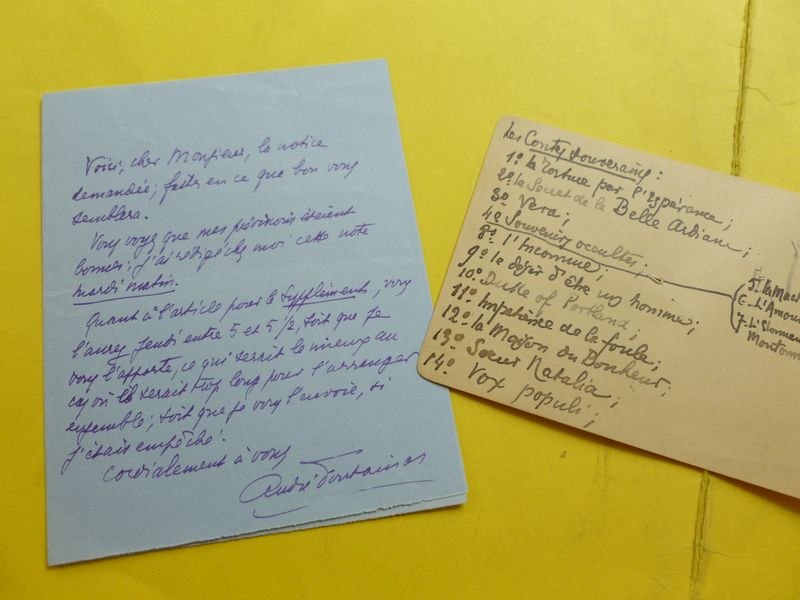 Voici, cher Monsieur, la notice
demandée; faites en ce que bon vous
semblera.
Vous voyez que mes prévisions étaient
bonnes; j'ai chez moi cette note
mardi matin.
Quant à l'article pour le Supplément, vous
l'aurez jeudi entre 5 et 5 1/2, soit que je
vous l'apporte, ce qui serait le mieux au
cas où il serait trop long pour l'arranger
ensemble; soit que je vous l'envoie, si
j'étais empêché.
Cordialement à vous
André Fontainas
Les Contes souverains :
1º la Torture par l'espérance;
2º le Secret de la Belle Ardiane;
3º Vera;
4º Souvenirs occultes;
8º l'Inconnue;
9º le désir d'être un homme;
10º Duke of Portland;
11º Impatience de la foule;
12º la Maison du Bonheur;
13º Sœur Natalia;
14º Vox populi;
5. la Mach
6. L'Amour